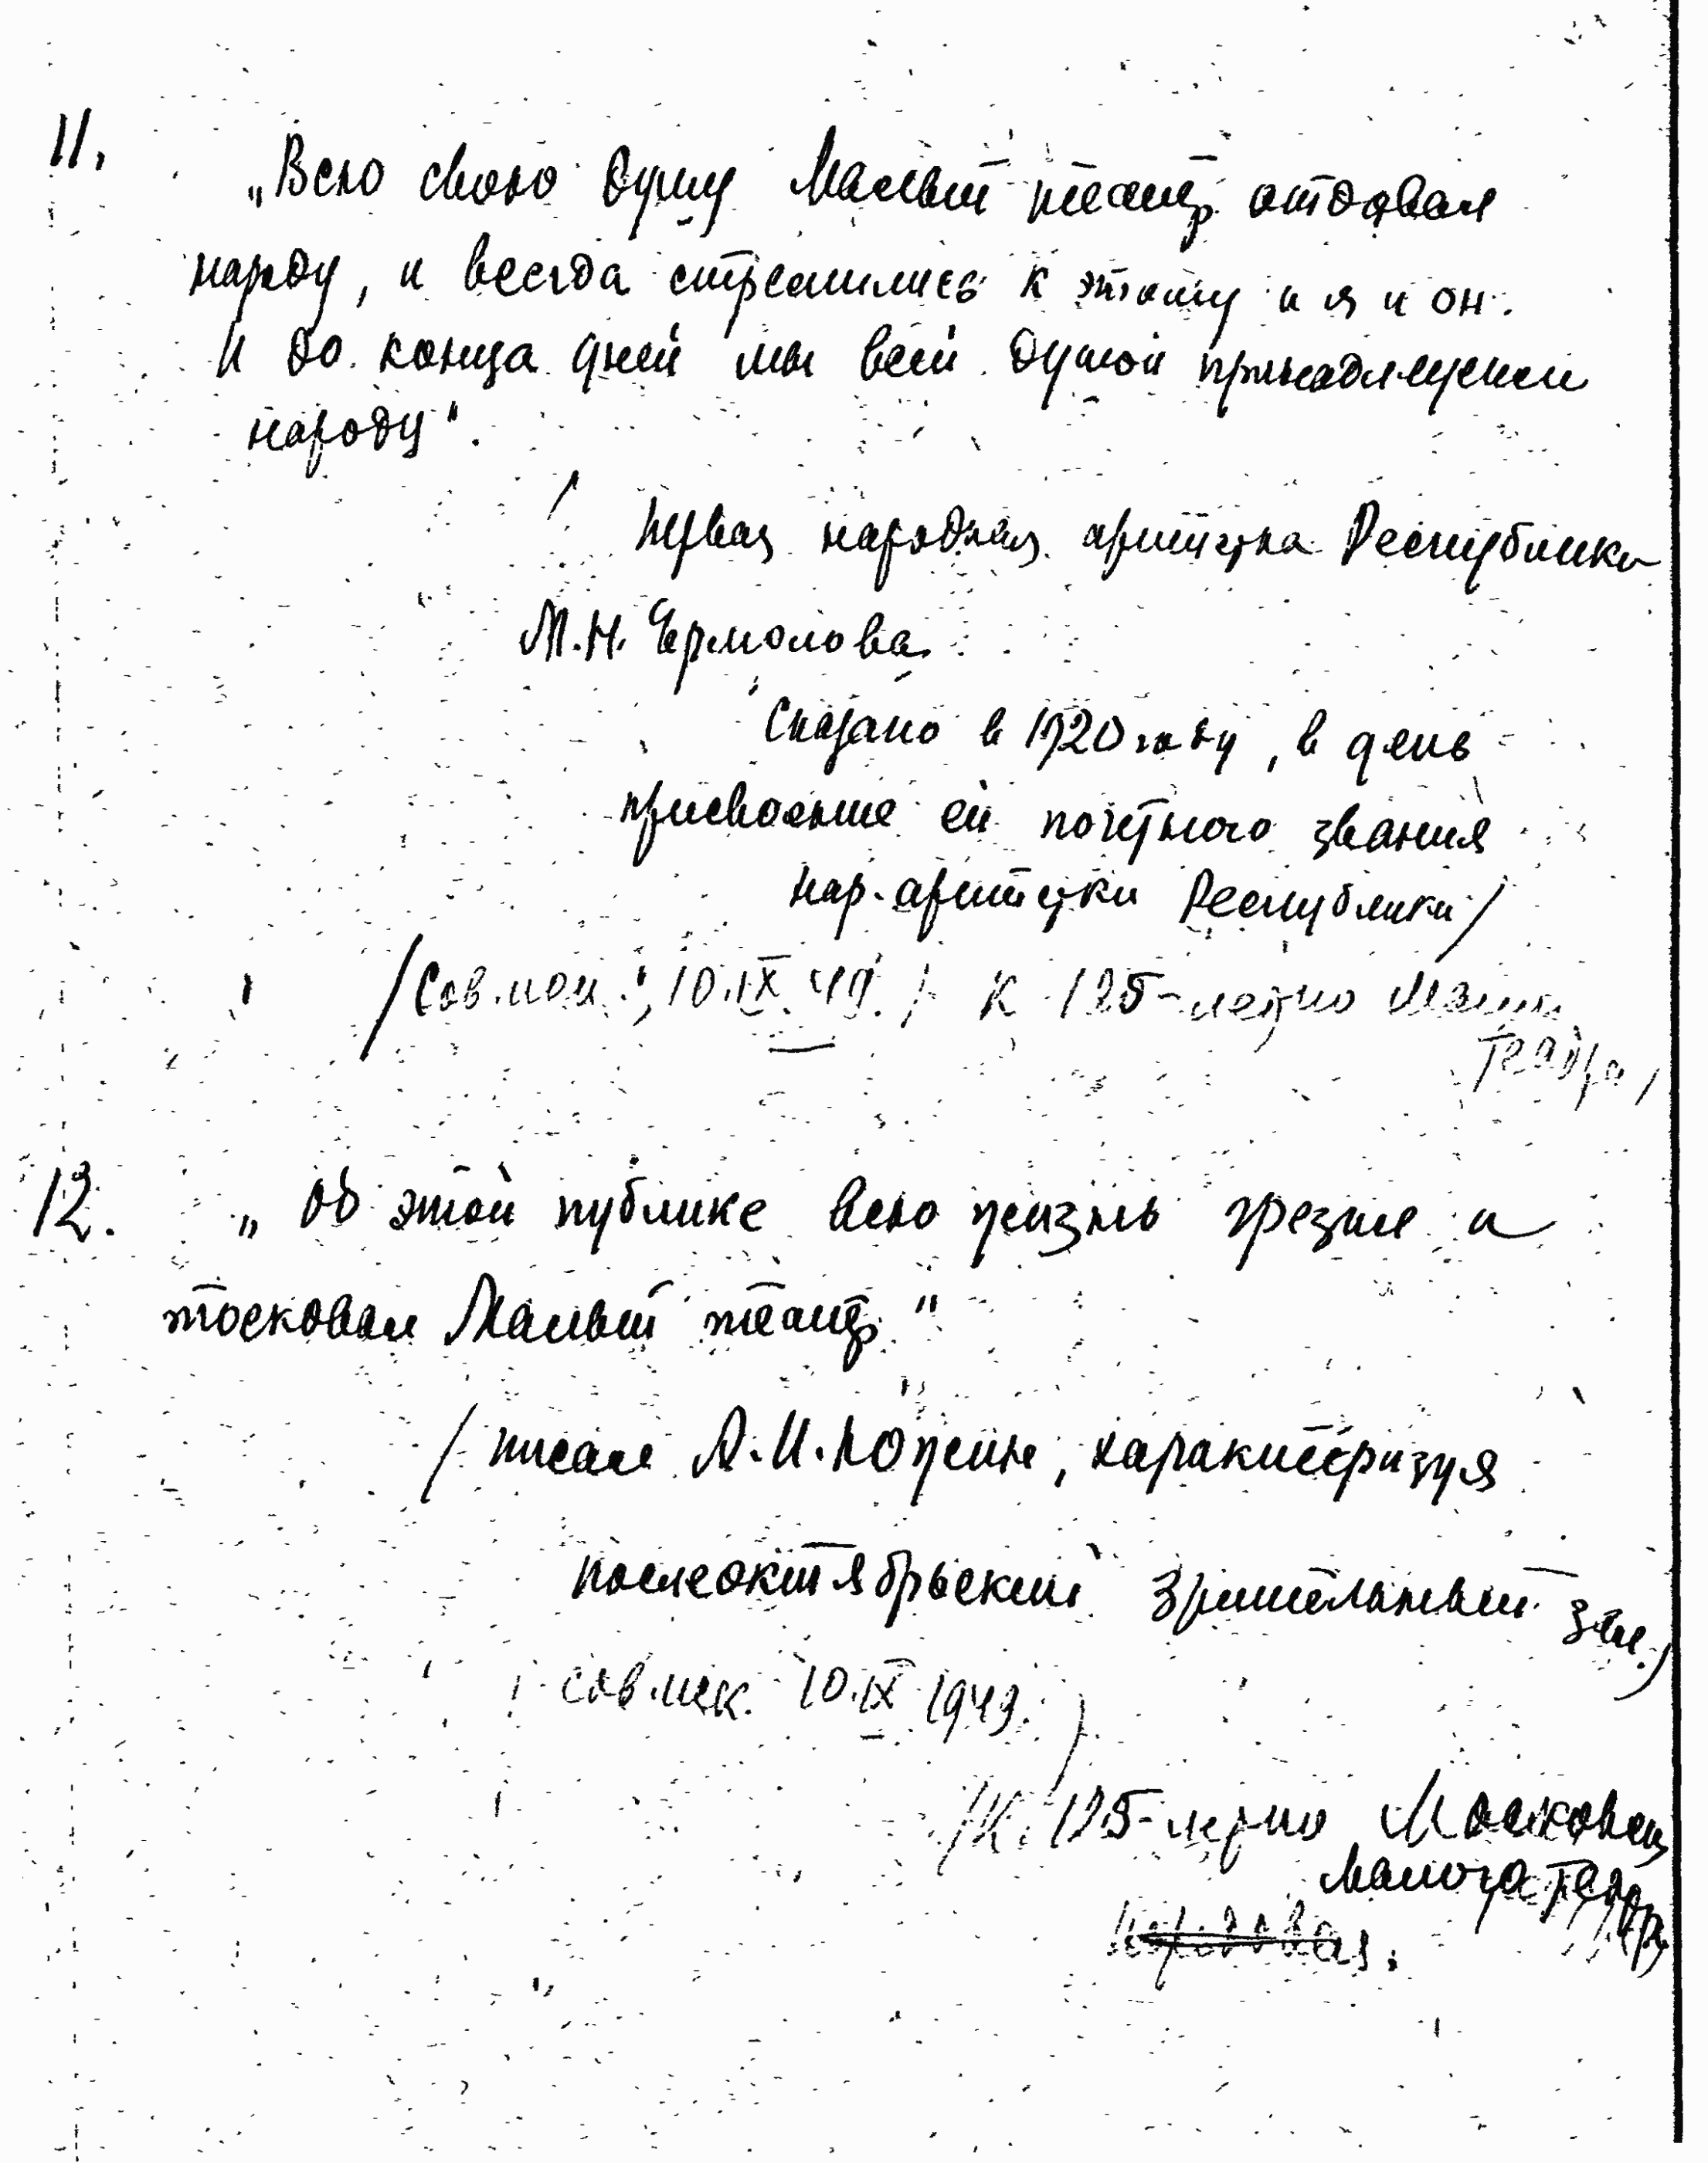 11.
„Всю свою душу Малый театр отдавал
народу, и всегда стремились к этому и я и он.
И до конца дней мы всей душой принадлежим
народу".
/ Первая народная артистка Республики
М.Н. Ермолова.
Сказано в 1920 году, в день
присвоение ей почетного звания
нар. артистки Республики/
/Сов. 10.IX.49./ К 125-летию Малы
театра/
12. „Об этой публике всю жизнь грезил и
тосковал Малый театр"
/писал А.И. Южин, характеризуя
послеоктябрьский зрительный зал./
Сов. иск. 10.IX 1949.)
/К 125-летию Московск
Малого театра